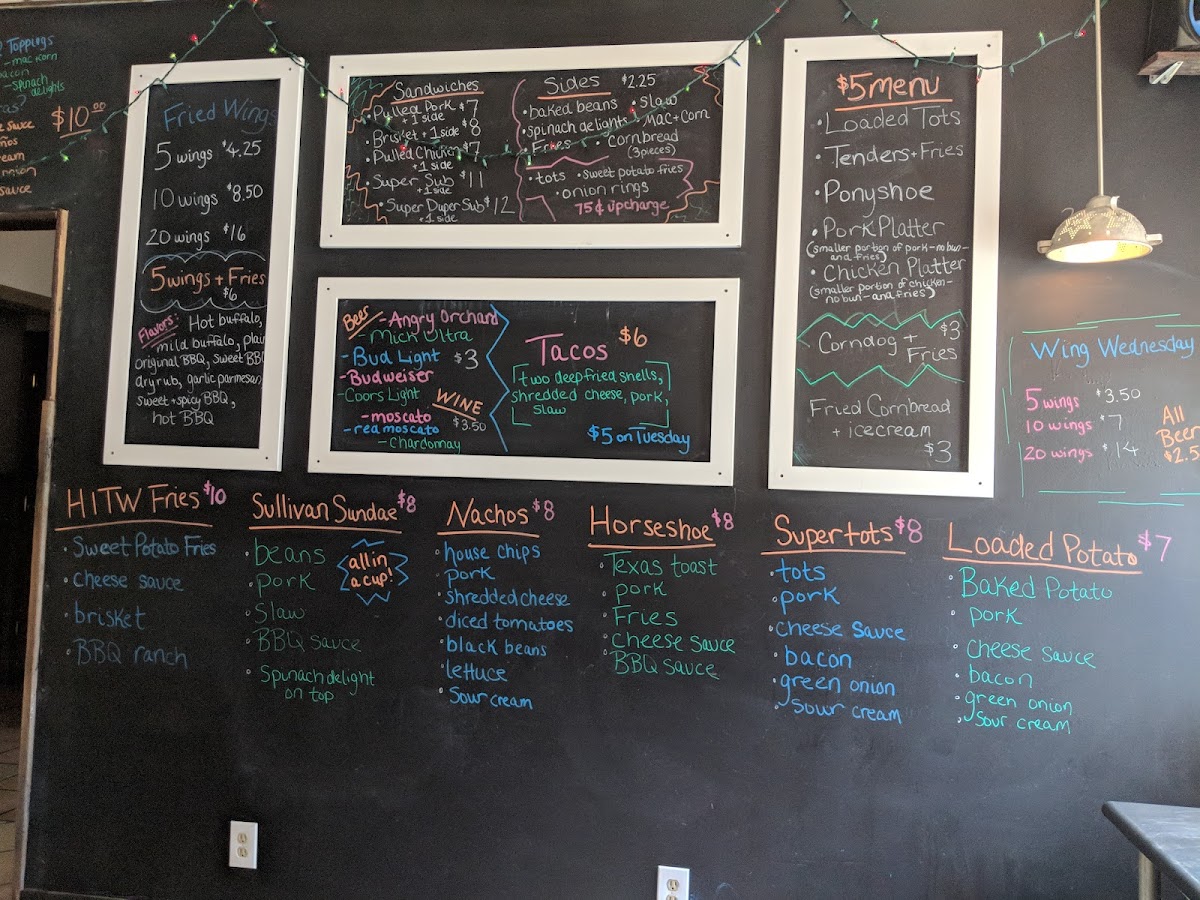 Toppings
- mac + corn
bacon
- spinach
delights
$10.00
sauce
Fried Wings
5 wings $4.25
10 wings $8.50
20 wings $16
5 wings + Fries
$6
Flavors: Hot buffalo,
mild buffalo, plain
original BBQ, sweet BBQ
dry rub, garlic parmesan
sweet + spicy BBQ,
hot BBQ
Sandwiches
Pulled Pork $7
+ 1 side
Brisket + 1 side $8
• Pulled Chicken $7
+ 1 side
• Super Sub $11
+ 1 side
• Super Duper Sub $12
+ 1 side
Sides $2.25
• baked beans • slaw
spinach delights • Mac + corn
• Fries • Cornbread
(3 pieces)
• tots • sweet potato fries
• onion rings
75¢ upcharge
Beer
- Angry Orchard
Mich Ultra
- Bud Light $3
- Budweiser
- Coors Light
WINE
$3.50
- moscato
- red moscato
- Chardonnay
Tacos $6
two deep fried shells,
shredded cheese, pork,
slaw
$5 on Tuesday
$5 menu
• Loaded Tots
• Tenders + Fries
• Ponyshoe
• Pork Platter
(smaller portion of pork - no bun -
and fries)
• Chicken Platter
(smaller portion of chicken -
no bun - and fries)
Corndog + Fries $3
Fried Cornbread
+ icecream
$3
Wing Wednesday
5 wings $3.50
10 wings $7
20 wings $14
All
Beer
$2.5
HITW Fries $10
• Sweet Potato Fries
• cheese sauce
• brisket
• BBQ ranch
Sullivan Sundae $8
• beans
• pork
• Slaw
• BBQ sauce
• Spinach delight
on top
all in
a cup!
Nachos $8
• house chips
• pork
• shredded cheese
• diced tomatoes
• black beans
• lettuce
• Sour cream
Horseshoe $8
• Texas toast
• pork
• Fries
• cheese sauce
• BBQ sauce
Supertots $8
• tots
• pork
• cheese sauce
• bacon
• green onion
• sour cream
Loaded Potato $7
• Baked Potato
• pork
• cheese sauce
• bacon
• green onion
• sour cream